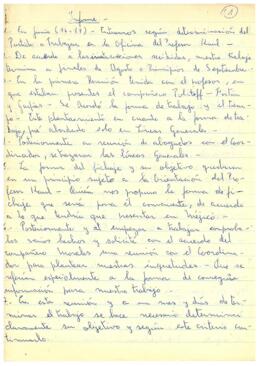 1A
Informe -
1. En Junio (14-17) - Entramos según determinación del
Partido a trabajar en la Oficina del Profesor
2. De acuerdo a las instrucciones recibidas, nuestro trabajo
termina a finales de Agosto o Principios de Septiembre -
3. En la primera Reunión tenida con el profesor, y en
que estaban presentes el compañero Politoff - Martín
y - Se abordó la forma de trabajo y el tiem-
po - Este planteamiento en cuanto a la forma de tra-
bajo, fué abordado solo en Líneas Generales -
4. Posteriormente en reunión de abogados con el Coor-
dinador, se trazaron las Líneas Generales -
5. La forma del fichaje y su objetivo quedaron
en un principio sujeto a la Orientación del Pro-
fesor - quién nos propuso la forma de fi-
chaje que sería para él conveniente, de acuerdo
a lo que tendría que presentar en Méjico -
6. Posteriormente y al empezar a trabajar compro-
bé varios hechos y solicité con el acuerdo del
compañero Morales una reunión con el Coordina-
dor para plantear nuestras inquietudes - Que se
referían especialmente a la forma de conseguir
información para nuestro trabajo -
7. En esta reunión y a un mes y días de ter-
minar el trabajo se hace necesario determinar
claramente su objetivo y según este criterio con-
tinuarlo -